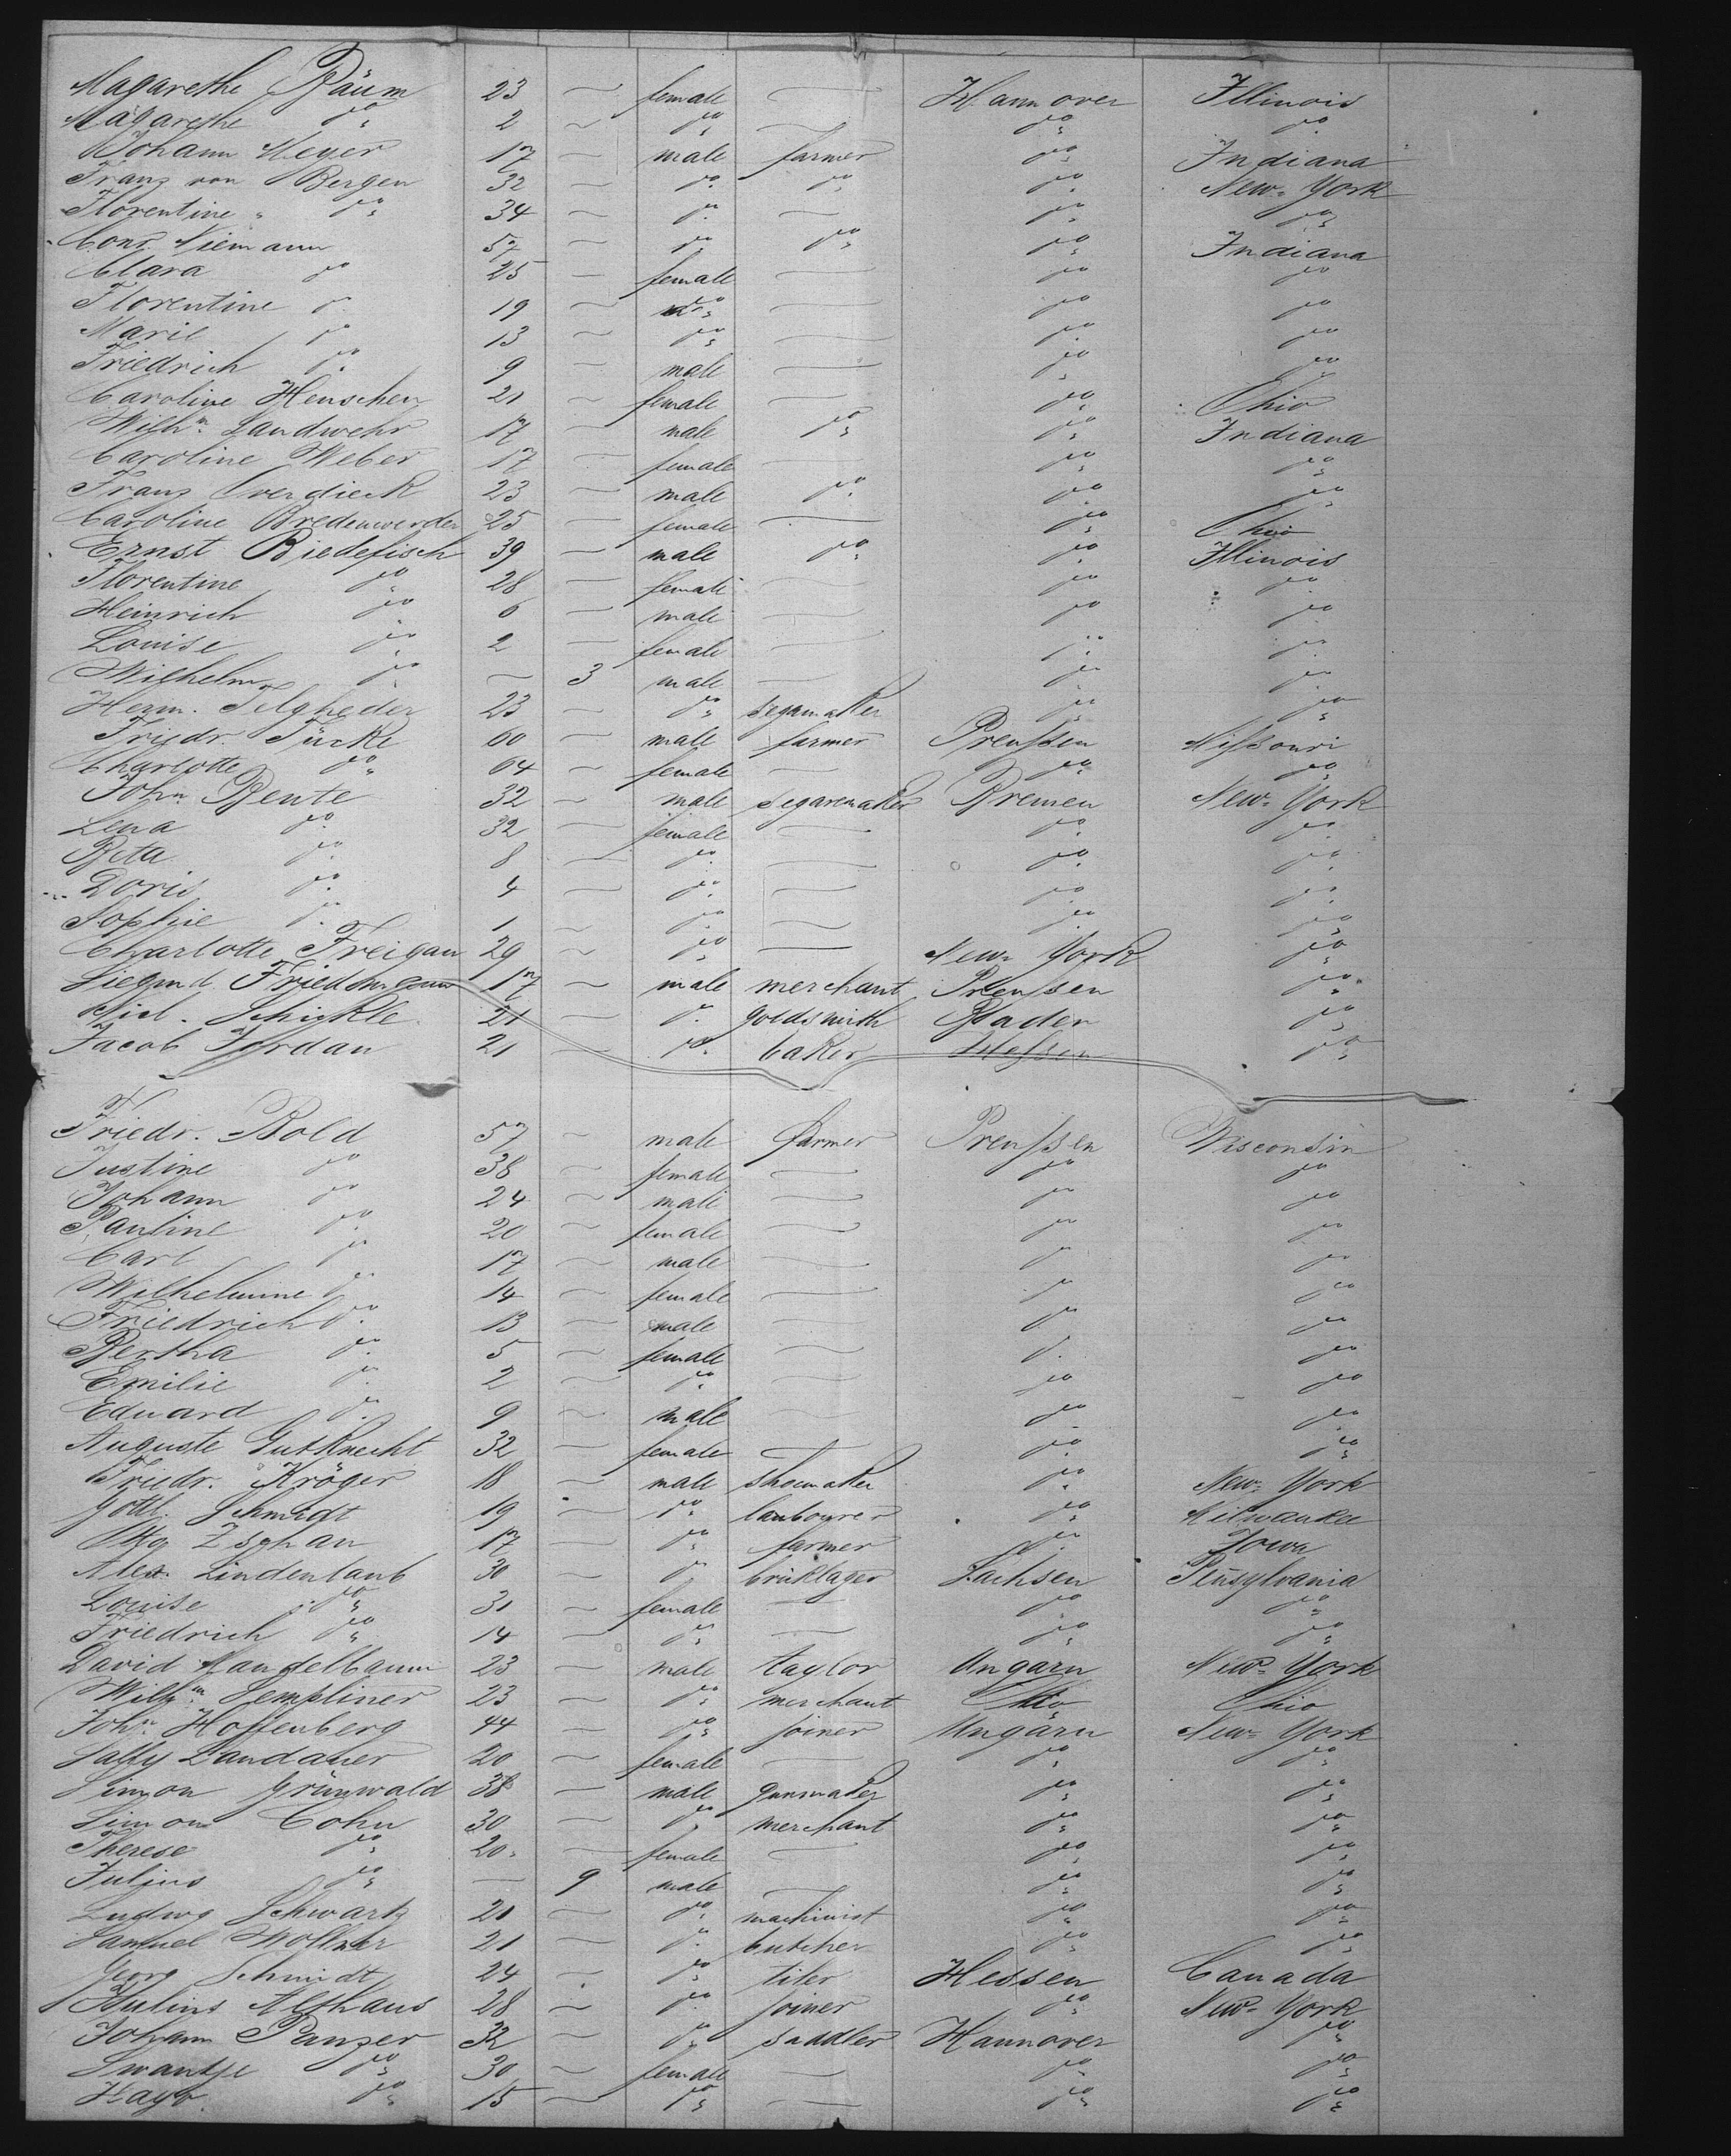 Magarethe Bäum 23 — female — Hannover Illinois
Magarethe do 2 — do — do do
Johann Meyer 17 — male farmer do Indiana
Franz von Bergen 32 — do do do New-York
Florentine " do 34 — do — do do
Conr. Niemann 57 — do do do Indiana
Clara do 25 — female — do do
Florentine do 19 — do — do do
Marie do 13 — do — do do
Friedrich do 9 — male — do do
Caroline Henschen 21 — female — do Ohio
Wilhm. Landwehr 17 — male do do Indiana
Caroline Weber 17 — female — do do
Franz Overdieck 23 — male do do do
Caroline Bredenwerder 25 — female — do Ohio
Ernst Biedefisch 39 — male do do Illinois
Florentine do 28 — female — do do
Heinrich do 6 — male — do do
Louise do 2 — female — do do
Wilhelm do — 3 male — do do
Herm. Selgheder 23 — do segamaker do do
Friedr. Tücke 60 — male farmer Preußen Mißouri
Charlotte do 64 — female — do do
John Bente 32 — male segaremaker Bremen New-York
Lena do 32 — female — do do
Beta do 8 — do — do do
Doris do 4 — do — do do
Sophie do 1 — do — do do
Charlotte Freigau 29 — do — New-York do
Siegmd. Friedmann 17 — male merchant Preußen do
Schickle 21 — do goldsmith Baden do
Jacob Jordan 21 — do baker Hessen do
Friedr. Bold 57 — male farmer Preußen Wisconsin
Justine do 38 — female — do do
Johann do 24 — male — do do
Pauline do 20 — female — do do
Carl do 17 — male — do do
Wilhelmine do 14 — female — do do
Friedrich do 13 — male — do do
Bertha do 5 — female — do do
Emilie do 2 — do — do do
Eduard do 9 — male — do do
Auguste Gutknecht 32 — female — do do
Friedr. Kröger 18 — male shoemaker do New-York
Gottl. Schmidt 19 — do laubourer do Milwaukee
Otto Zschau 17 — do farmer do Iowa
Alex. Lindenlaub 30 — do bricklager Sachsen Pensylvania
Louise do 31 — female — do do
Friedrich do 14 — do — do do
David Mandelbaum 23 — male taylor Ungarn New-York
Wilhm. Sempliner 23 — do merchant Ohio
John Hoffenberg 44 — do joiner Ungarn New-York
Sally Landauer 20 — female — do do
Simon Grünwald 38 — male gunmaker do do
Simon Cohn 30 — do merchant do do
Therese do 20 — female — do do
Julius do — 9 male — do do
Ludwg Schwartz 21 — do machinist do do
Samuel Wollner 21 — do butcher do do
Georg Schmidt 24 — do tiler Hessen Canada
Julius Althaus 28 — do joiner do New-York
Johann Panzer 32 — do saddler Hannover do
Swantje do 30 — female — do do
Hayo do 15 — do — do do